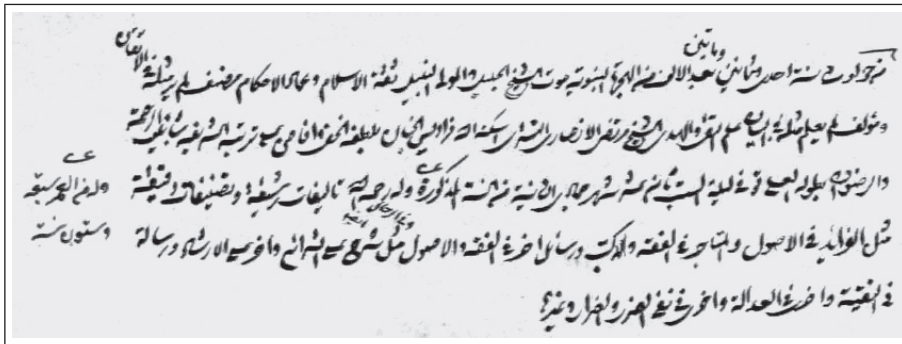 من حوادث سنة احدى وثمانين ومأتين بعد الالف من الهجرة النبوية موت الشيخ الجليل والمولى النبيل ثقة الاسلام وعماد الاحكام مصنف لم ير مثله في الآفاق
ومؤلف لم يعلم مثله علم التقى والهدى الشيخ مرتضى الانصاري التستري اسكنه الله فراديس الجنان بلطفه الخفي وافاض على تربته الشريفة شآبيب الرحمة
والرضوان بطوله العلي توفي ليلة السبت ثامن عشر شهر جمادى الثانية من السنة المذكورة وله رحمه الله تاليفات رشيقة وتصنيفات دقيقة
مثل الفوائد في الاصول والمتاجر في الفقه والمكاسب ورسائل اخر في الفقه والاصول مثل شرح على الشرائع واخر على الارشاد ورسالة
في التقية واخرى في العدالة واخرى في نفي الضرر والضرار وغيرها
وله من العمر سبعة
وستون سنة